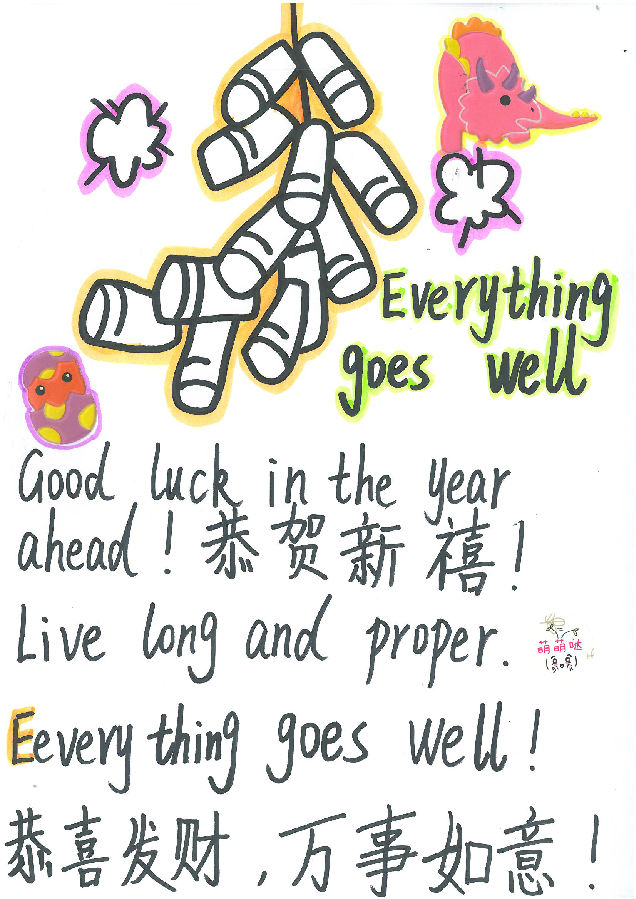 Everything
goes well
Good luck in the year
ahead! 恭贺新禧!
Live long and proper.
萌萌哒
Eeverything goes well!
恭喜发财,万事如意!